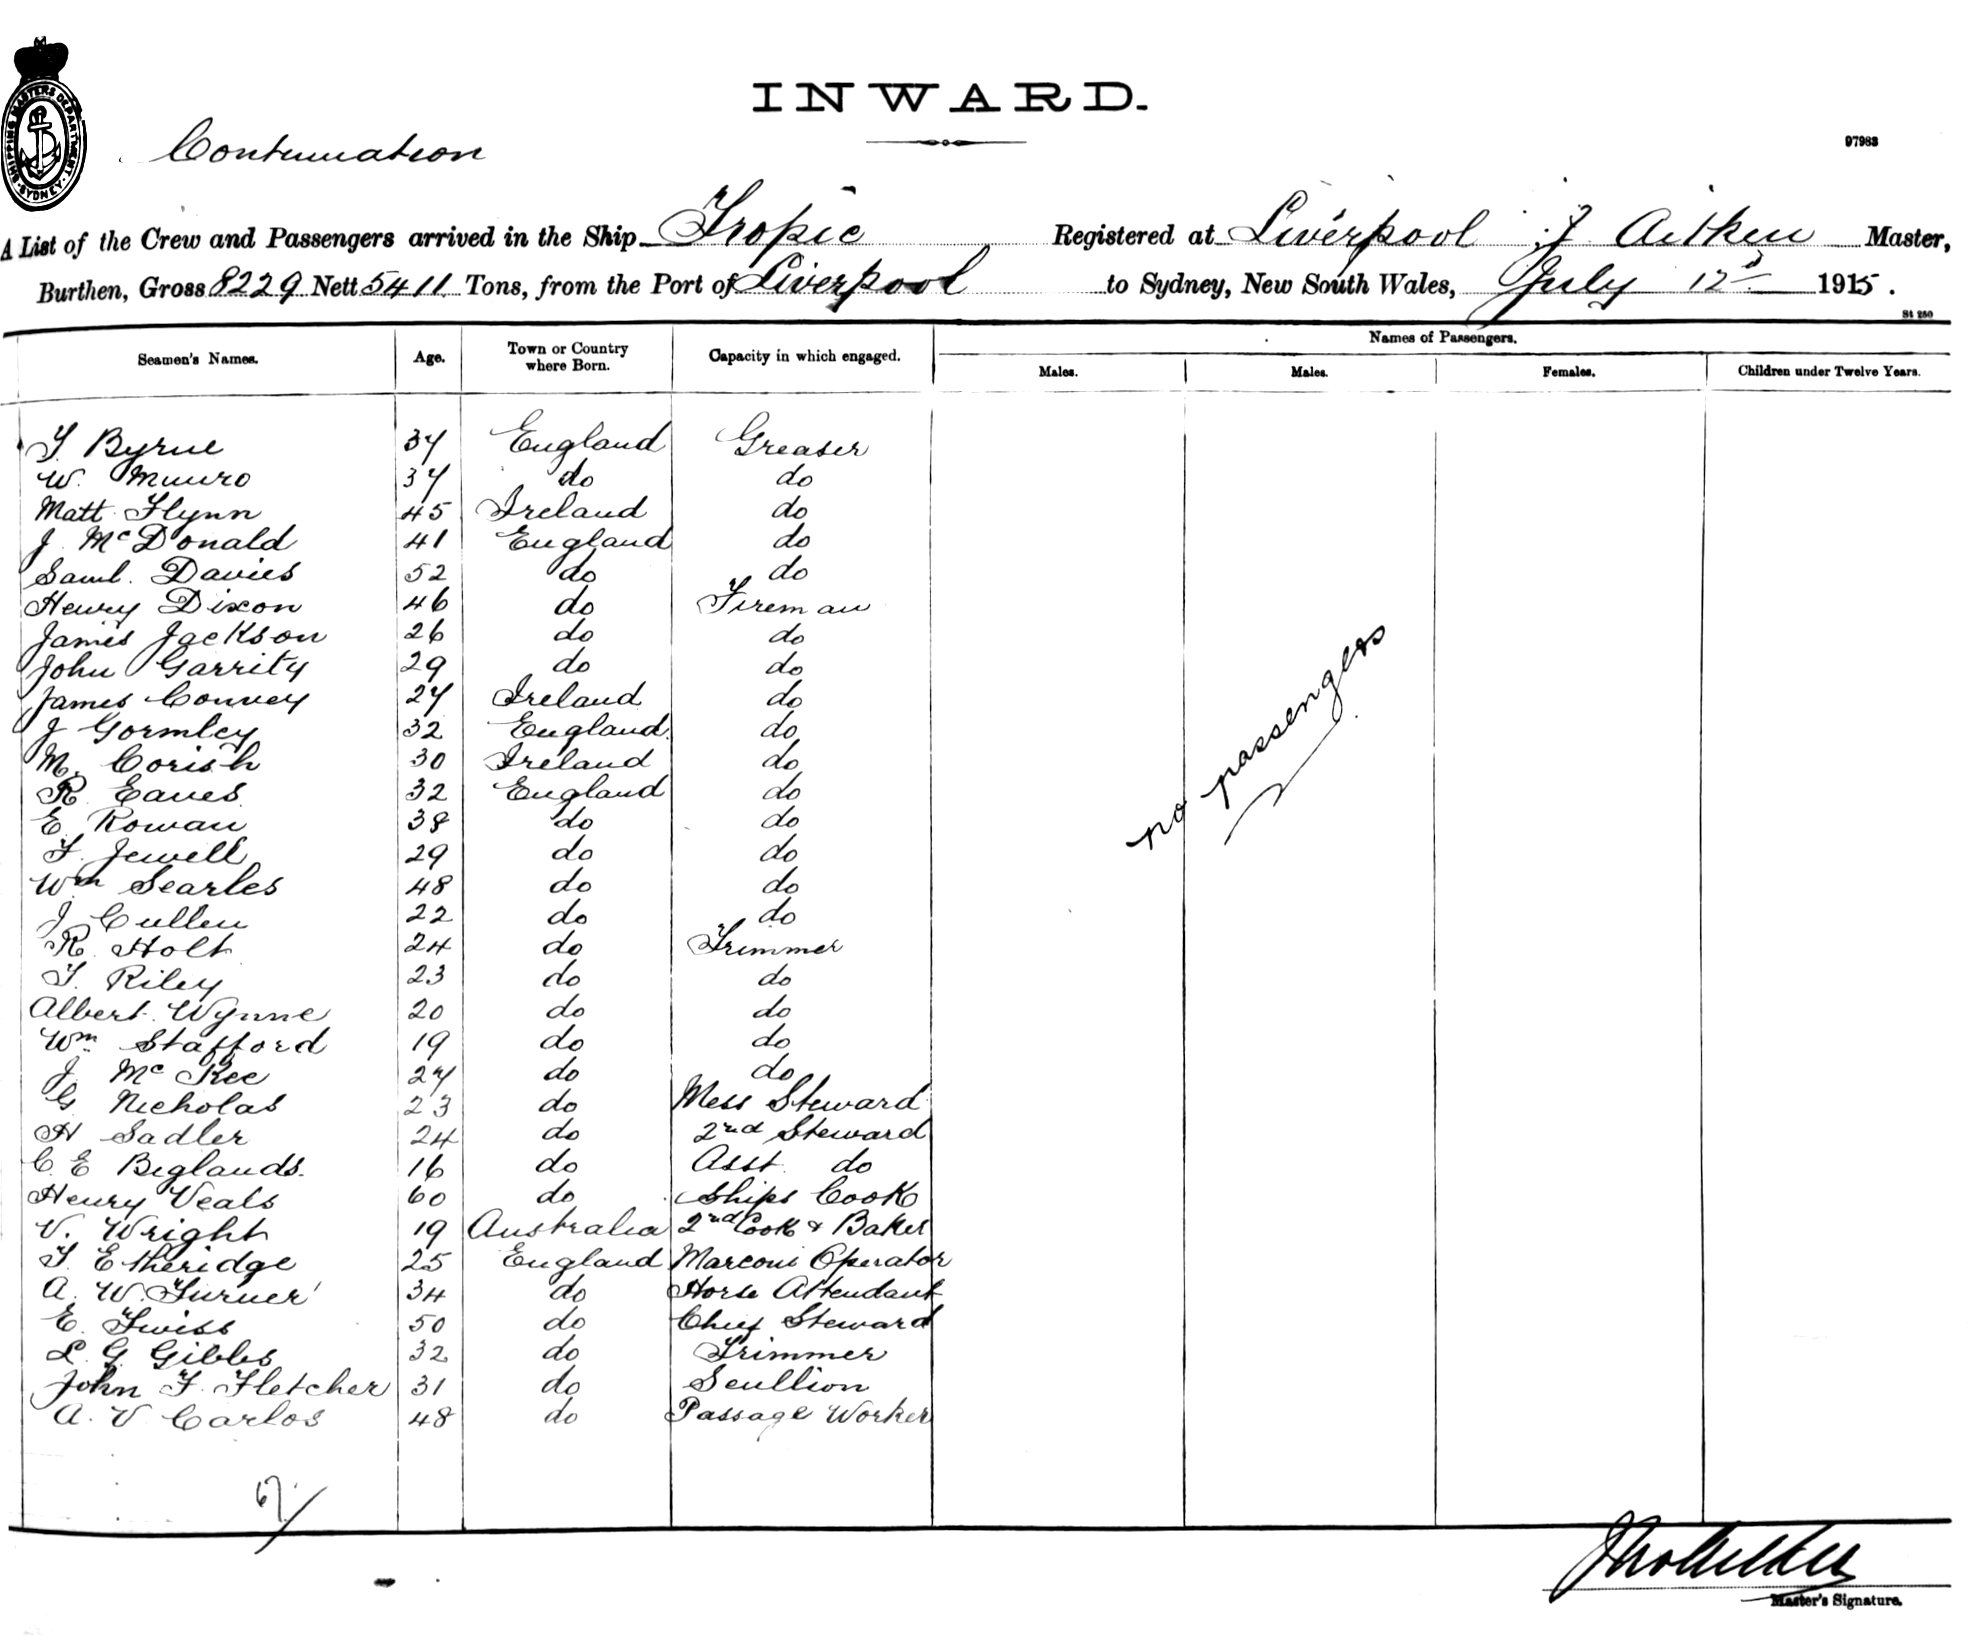 INWARD.
SHIPPING MASTERS DEPARTMENT. SYDNEY.
Continuation
97983
A List of the Crew and Passengers arrived in the Ship Tropic Registered at Liverpool J Aitken Master,
Burthen, Gross 8229 Nett 5411 Tons, from the Port of Liverpool to Sydney, New South Wales, July 12 1915.
St 250
Seamen's Names. Age. Town or Country where Born. Capacity in which engaged. Names of Passengers.
Males. Males. Females. Children under Twelve Years.
T Byrne 37 England Greaser
W. Munro 37 do do
Matt Flynn 45 Ireland do
J McDonald 41 England do
Saml. Davies 52 do do
Henry Dixon 46 do Fireman
James Jackson 26 do do
John Garrity 29 do do
James Convey 27 Ireland do
J Gormley 32 England do
M. Corish 30 Ireland do
R Eaves 32 England do
E Rowan 38 do do
F. Jewell 29 do do
Wm Searles 48 do do
J Cullen 22 do do
R. Holt 24 do Trimmer
T. Riley 23 do do
Albert Wynne 20 do do
Wm Stafford 19 do do
J McKee 27 do do
G Nicholas 23 do Mess Steward
H Sadler 24 do 2nd Steward
C. E Biglands. 16 do Asst. do
Henry Veals 60 do Ships Cook
V. Wright 19 Australia 2nd Cook & Baker
T. Etheridge 25 England Marconi Operator
A. W. Turner 34 do Horse Attendant
E. Twiss 50 do Chief Steward
L. G. Gibbs 32 do Trimmer
John F. Fletcher 31 do Scullion
A. V Carlos 48 do Passage Worker
no passengers
Master's Signature.